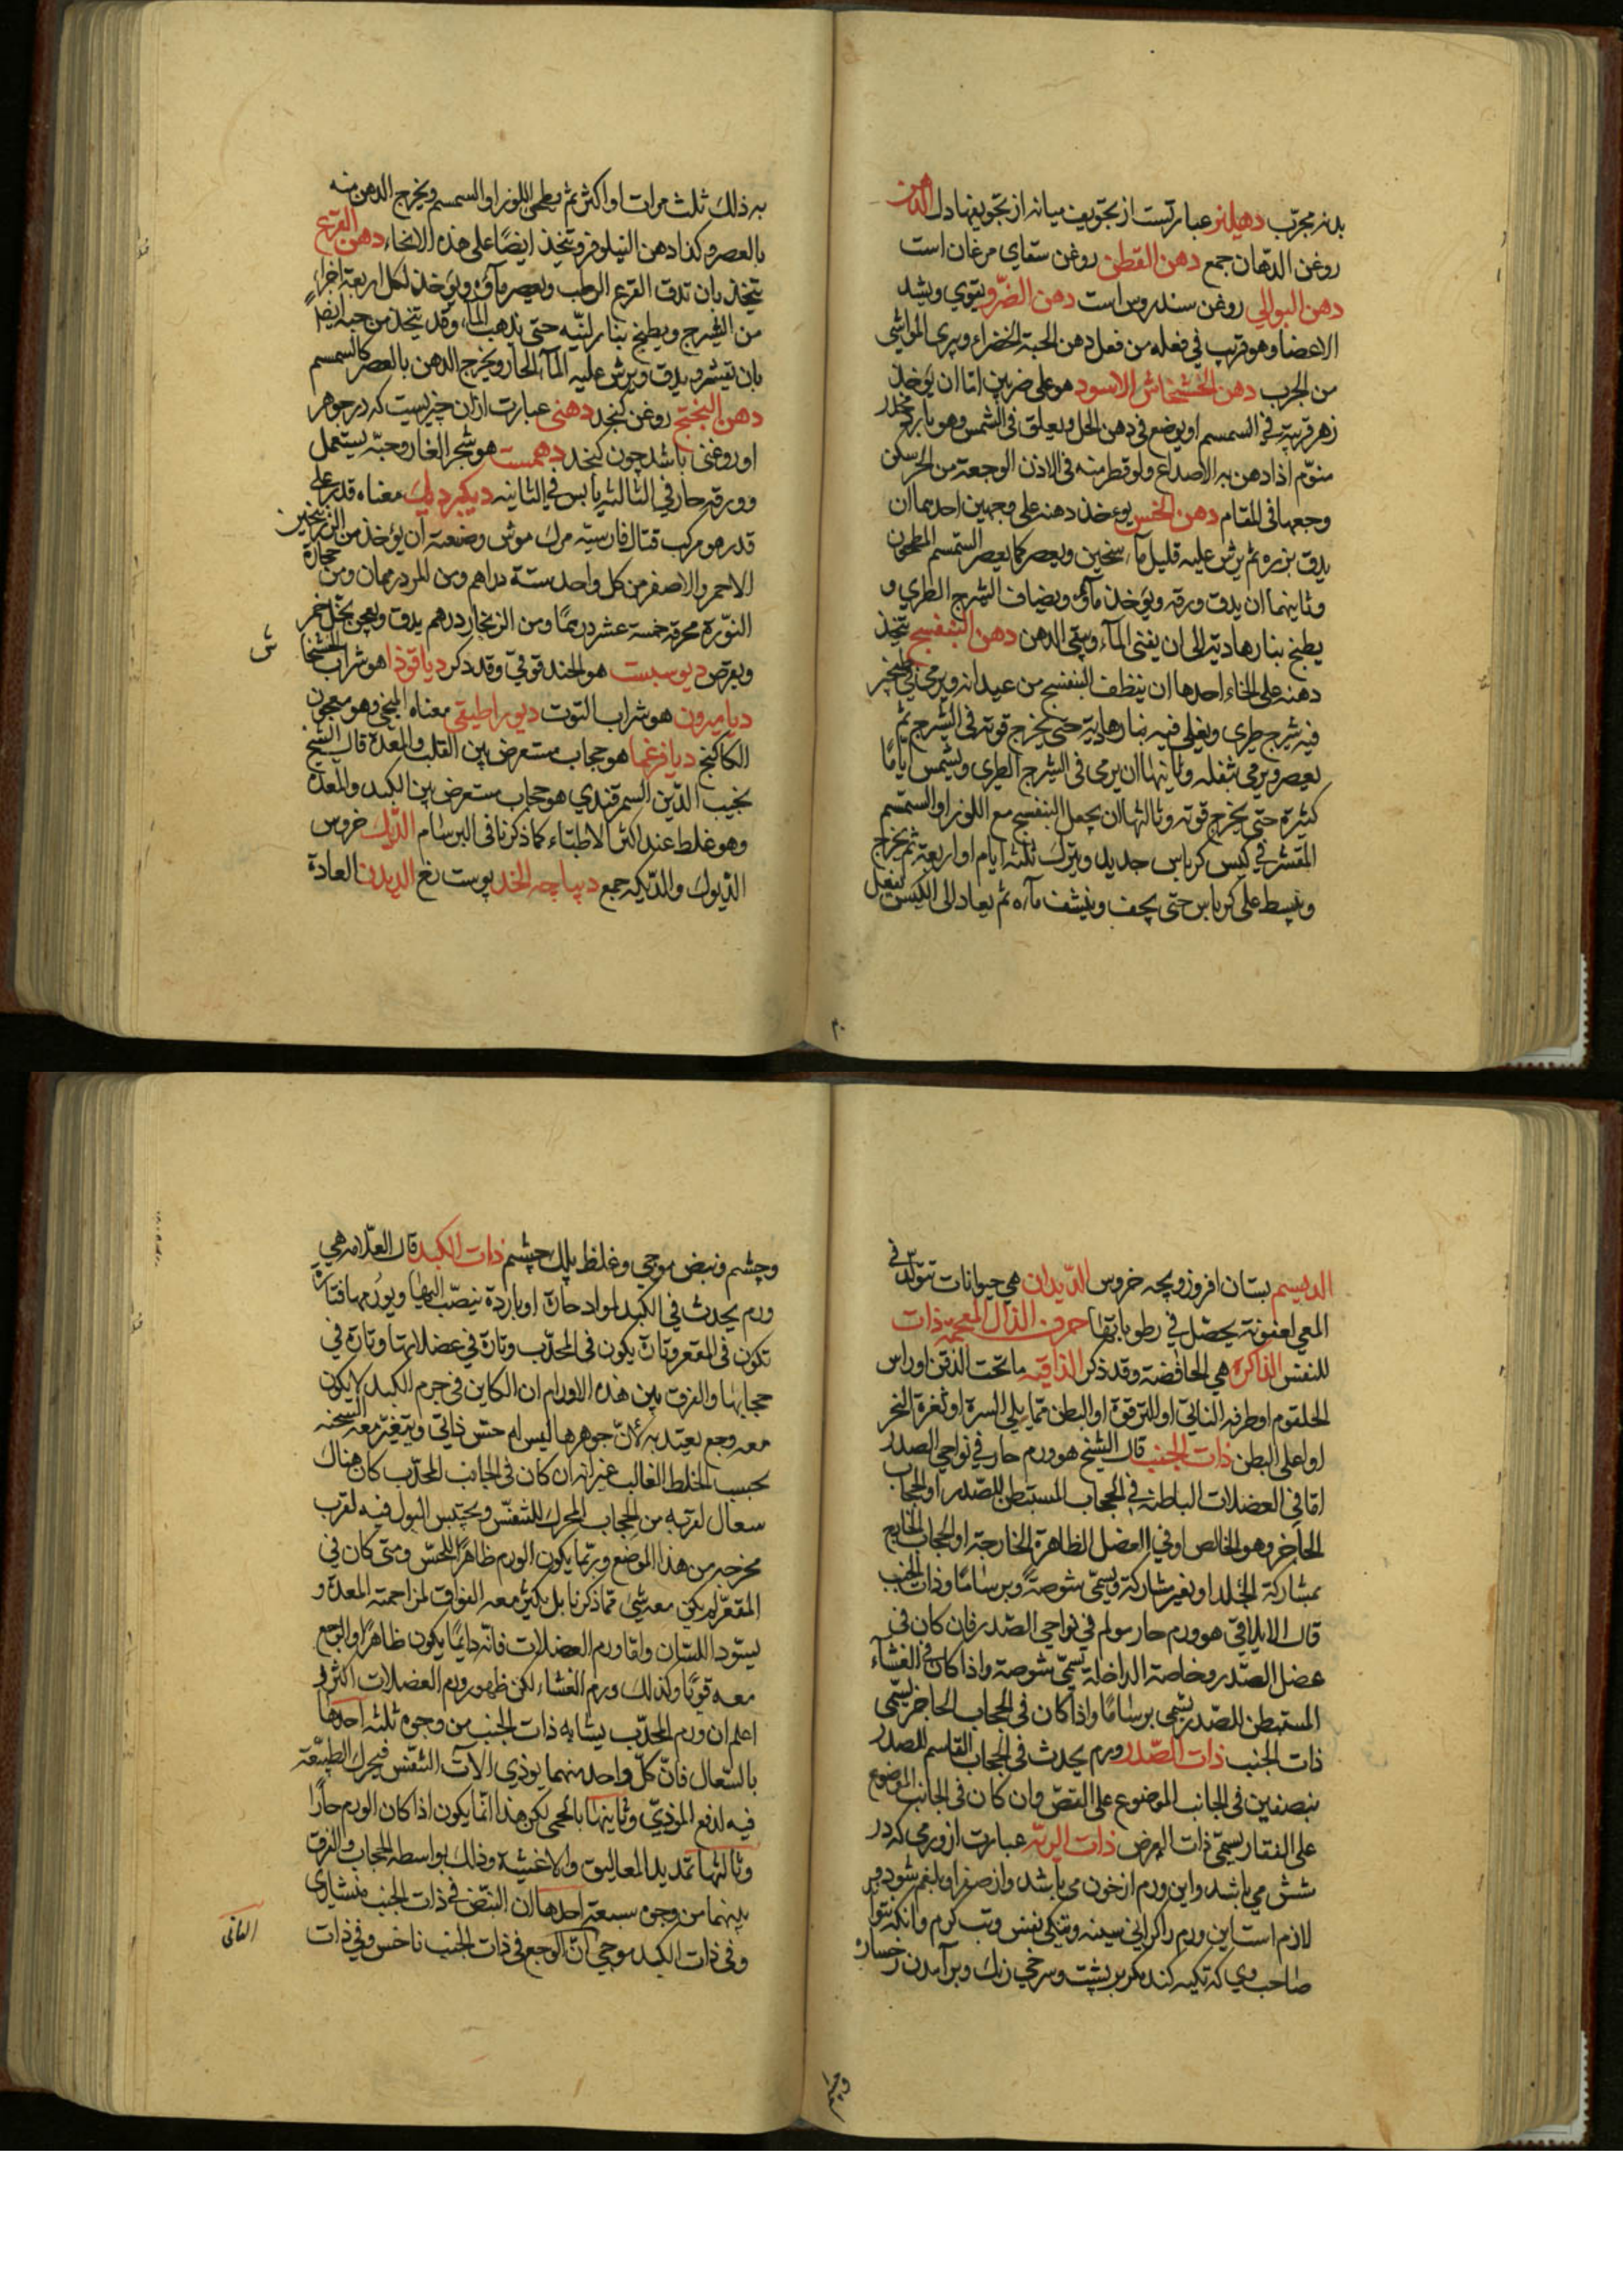 بدنرمجرّب دهیلنر عبارتست از تجویف میانه از تجویفهاء دل الدهن
روغن الدّهان جمع دهن القطن روغن سقاي مرغان است
دهن البوالي روغن سندروس است دهن الضّرو یقوي ویشد
الاعضا وهو قریب في فعله من فعل دهن الحبة الخضراء ویبري المواشي
من الجرب دهن الخشخاش الاسود هو علی ضربین امّا ان یؤخذ
زهره فیربی في السمسم او یوضع في دهن الحل ویعلق في الشمس وهو بارد مخدر
منوّم اذا دهن به الاصداغ ولو قطر منه في الاذن الوجعة من الحر سکن
وجعها في المقام دهن الخس یؤخذ دهنه علی وجهین احدهما ان
یدق بزره ثم یرش علیه قلیل ماء سخین ویعصر کما یعصر السّمسم المطحون
وثاینهما ان یدق ورقه ویؤخذ مآؤه ویضاف الشیرج الطري و
یطبخ بنار هادیة الی ان یفنی المآء ویبقی الدهن دهن البنفسج یتخذ
دهنه علی انحاء احدها ان ینظف البنفسج من عیدانه ویرمی في طنجیر
فیه شیرج طري ویغلی فیه بنار هادیة حتی یخرج قوته في الشیرج ثم
یعصر ویرمی بثفله وثانیها ان یرمی في الشیرج الطري ویشمس ایامًا
کثیرة حتی یخرج قوته وثالثها ان یجعل البنفسج مع اللوز او السمسم
المقشر في کیس کرباس جدید ویترك ثلثة ایام او اربعة ثم یخرج
ویبسط علی کرباس حتی یجف وینشف مآءه ثم یعاد الی الکیس یفعل
به ذلك ثلث مرات او اکثر ثم یطحن اللوز او السمسم ویخرج الدهن منه
بالعصر وکذا دهن النیلوفر ویتخذ ایضًا علی هذه الانحاء دهن القرع
یتخذ بان تدق القرع الرطب ویعصر مآؤه ویؤخذ لکل اربعة اجزاء
من الشیرج ویطبخ بنار لینّه حتی یذهب المآء وقد یتخذ من حبه ایضًا
بان یقشر ویدق ویرش علیه المآء الحار ویخرج الدهن بالعصر کالسمسم
دهن البختج روغن کنجد دهنی عبارت از آن چیزیست که در جوهر
او روغنی باشد چون کنجد دهمست هو شجر الغار وحبّه یستعمل
وورقه حار في الثالثه یابس في الثانیه دیکبردیك معناه قدر علی
قدر هو مرکب قتال فارسیّه مرك موش وصنعته ان یؤخذ من الزرنیخین
الاحمر والاصفر من کل واحد ستة دراهم ومن المرد درهمان ومن حجارة
النّورة محرقة خمسة عشر درهمًا ومن الزنجار درهم یدق ویعجن بخل خمر
ویقرص دیوسبست هو الحندقوقي وقد ذکر دیاقوذا هو شراب الخشخا
ش
دیامیرون هو شراب التوت دیوراطیقی معناه المنجي وهو معجون
الکاکنج دیافرغما هو حجاب مستعرض بین القلب والمعدة قال الشیخ
نجیب الدّین السمرقندي هو حجاب مستعرض بین الکبد والمعدة
وهو غلط عند اکثر الاطبّاء کما ذکرنا في البرسام الدّیك خروس
الدّیوك والدّیکه جمع دیباجه الخد پوست نغ الدیدن العادة
الدیسم بستان افروز وبچه خروس الدّیدان هي حیوانات تتولّد في
المعي لعفونة یحصل في رطوباتها حرف الذال المعجمة ذات
للنفس الذاکرة هي الحافضة وقد ذکر الذاقنه ما تحت الذقن او راس
الحلقوم او طرفه الناتي او الترقوة او البطن ممّا یلي السرة او ثغرة النحر
او اعلی البطن ذات الجنب قال الشیخ هو ورم حار في نواحي الصدر
امّا في العضلات الباطنة في الحجاب المستبطن للصّدر او الحجاب
الحاجز وهو الخالص او في العضل الظاهرة الخارجة او الحجاب الخارج
بمشارکة الجلد او بغیر مشارکة ویسمّی شوصةً وبرسامًا وذات الجنب
قال الایلاقي هو ورم حار مولم في نواحي الصّدر فان کان في
عضل الصّدر وخاصة الداخلة یسمّی شوصة واذا کان في الغشآء
المستبطن للصّدر یسمّی برسامًا واذا کان في الحجاب الحاجز یسمّی
ذات الجنب ذات الصّدر ورم یحدث في الحجاب القاسم للصدر
بنصفین في الجانب الموضوع علی القصّ وان کان في الجانب الموضوع
علی الفقار یسمّی ذات العرض ذات الریّه عبارت از ورمی که در
شش می باشد واین ورم از خون می باشد واز صفرا وبلغم شود و
لازم است این ورم را کرانی سینه وتنکی نفس وتب کرم وآنکه نتوا
صاحب وی که تکیه کند مکر بر پشت وسرخی زنك وبرآمدن رخساره
وچشم ونبض موجي وغلظ پلك چشم ذات الکبد قال العلّامه هي
ورم یحدث في الکبد لمواد حارة او باردة ینصبّ الیها ویورمها فتارة
تکون في المقعر وتارة یکون في المحدّب وتارة في عضلاتها وتارة في
حجابها والفرق بین هذه الاورام ان الکاین في جرم الکبد لا یکون
معه وجع یعتد به لانّ جوهرها لیس له حسّ ذاتي ویتغیّر معه السحنه
بحسب الخلط الغالب غیر انه ان کان في الجانب المحدّب کان هناك
سعال لقربه من الحجاب المحرك للتنفّس ویحتبس البول فیه لقرب
مخرجه من هذا الموضع وربّما یکون الورم ظاهرًا للحسّ ومتی کان في
المقعّر لم یکن معه شئ ممّا ذکرنا بل یکثر معه الفواق لمزاحمة المعدة و
یستود اللسان وامّا ورم العضلات فانّه دایمًا یکون ظاهرًا والوجع
معه قویًا وکذلك ورم الغشاء لکن ظهور ورم العضلات اکثر و
اعلم ان ورم المحدّب یشابه ذات الجنب من وجوه ثلثه احدها
بالسّعال فانّ کلّ واحد منهما یوذي الآت التنفّس فیحرك الطبیعة
فیه لدفع الموذيّ وثانیها بالحمی لکن هذا انّما یکون اذا کان الورم حارًا
وثالثها تمدید المعالیق والاغشیة وذلك بواسطه الحجاب والفرق
بینهما من وجوه سبعة احدها ان النبض في ذات الجنب منشاري
وفي ذات الکبد موجي الثانی انّ الوجع في ذات الجنب ناخس وفي ذات